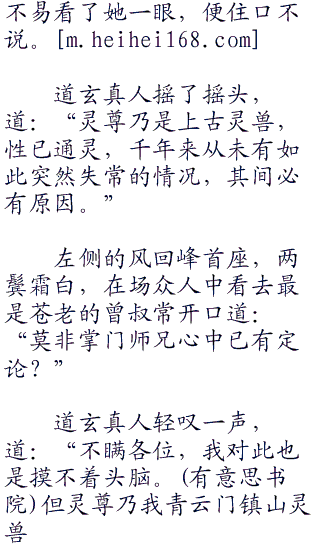 不易看了她一眼，便住口不
说。[m.heihei168.com]
道玄真人摇了摇头，
道：“灵尊乃是上古灵兽，
性已通灵，千年来从未有如
此突然失常的情况，其间必
有原因。”
左侧的风回峰首座，两
鬓霜白，在场众人中看去最
是苍老的曾叔常开口道：
“莫非掌门师兄心中已有定
论？”
道玄真人轻叹一声，
道：“不瞒各位，我对此也
是摸不着头脑。(有意思书
院)但灵尊乃我青云门镇山灵
兽